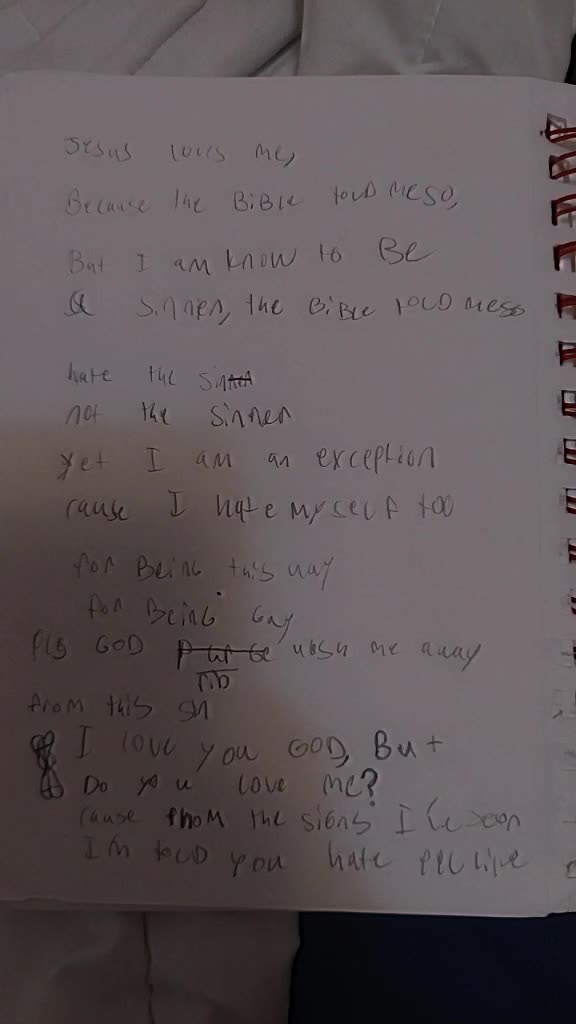 Jesus loves me,
Because the BiBle told me so,
But I am know to Be
a sinner, the BiBle told me so
hate the sinner
not the sinner
yet I am an exception
cause I hate myself too
for Being this way
for Being Gay
Pls GOD wash me away
from this sn
I love you GOD, But
Do you love me?
cause from the signs I've seen
I'm told you hate ppl like